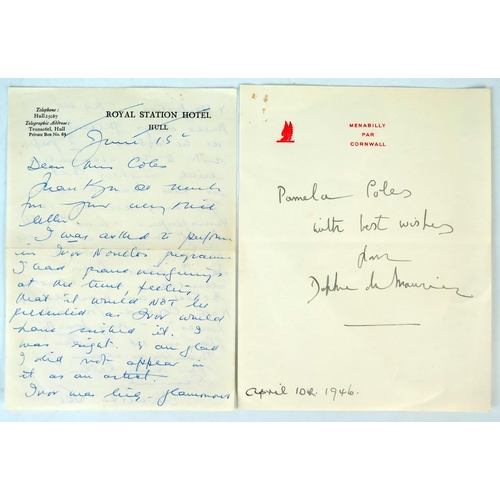 Telephone:
Hull 25087
Telegraphic Address:
Transotel, Hull
Private Box No. 85
ROYAL STATION HOTEL
HULL
June 15
Dear Miss Coles
Thank you so much
for your very kind
letter.
I was asked to perform
in Ivor Novellos programme
I had grand misgivings
at the time, feeling
that it would NOT be
presented as Ivor would
have wished it. I
was right. I am glad
I did not appear in
it as an artist.
Ivor was glamorous
MENABILLY
PAR
CORNWALL
Pamela Coles
with best wishes
from
Daphne du Maurier
April 10th. 1946.